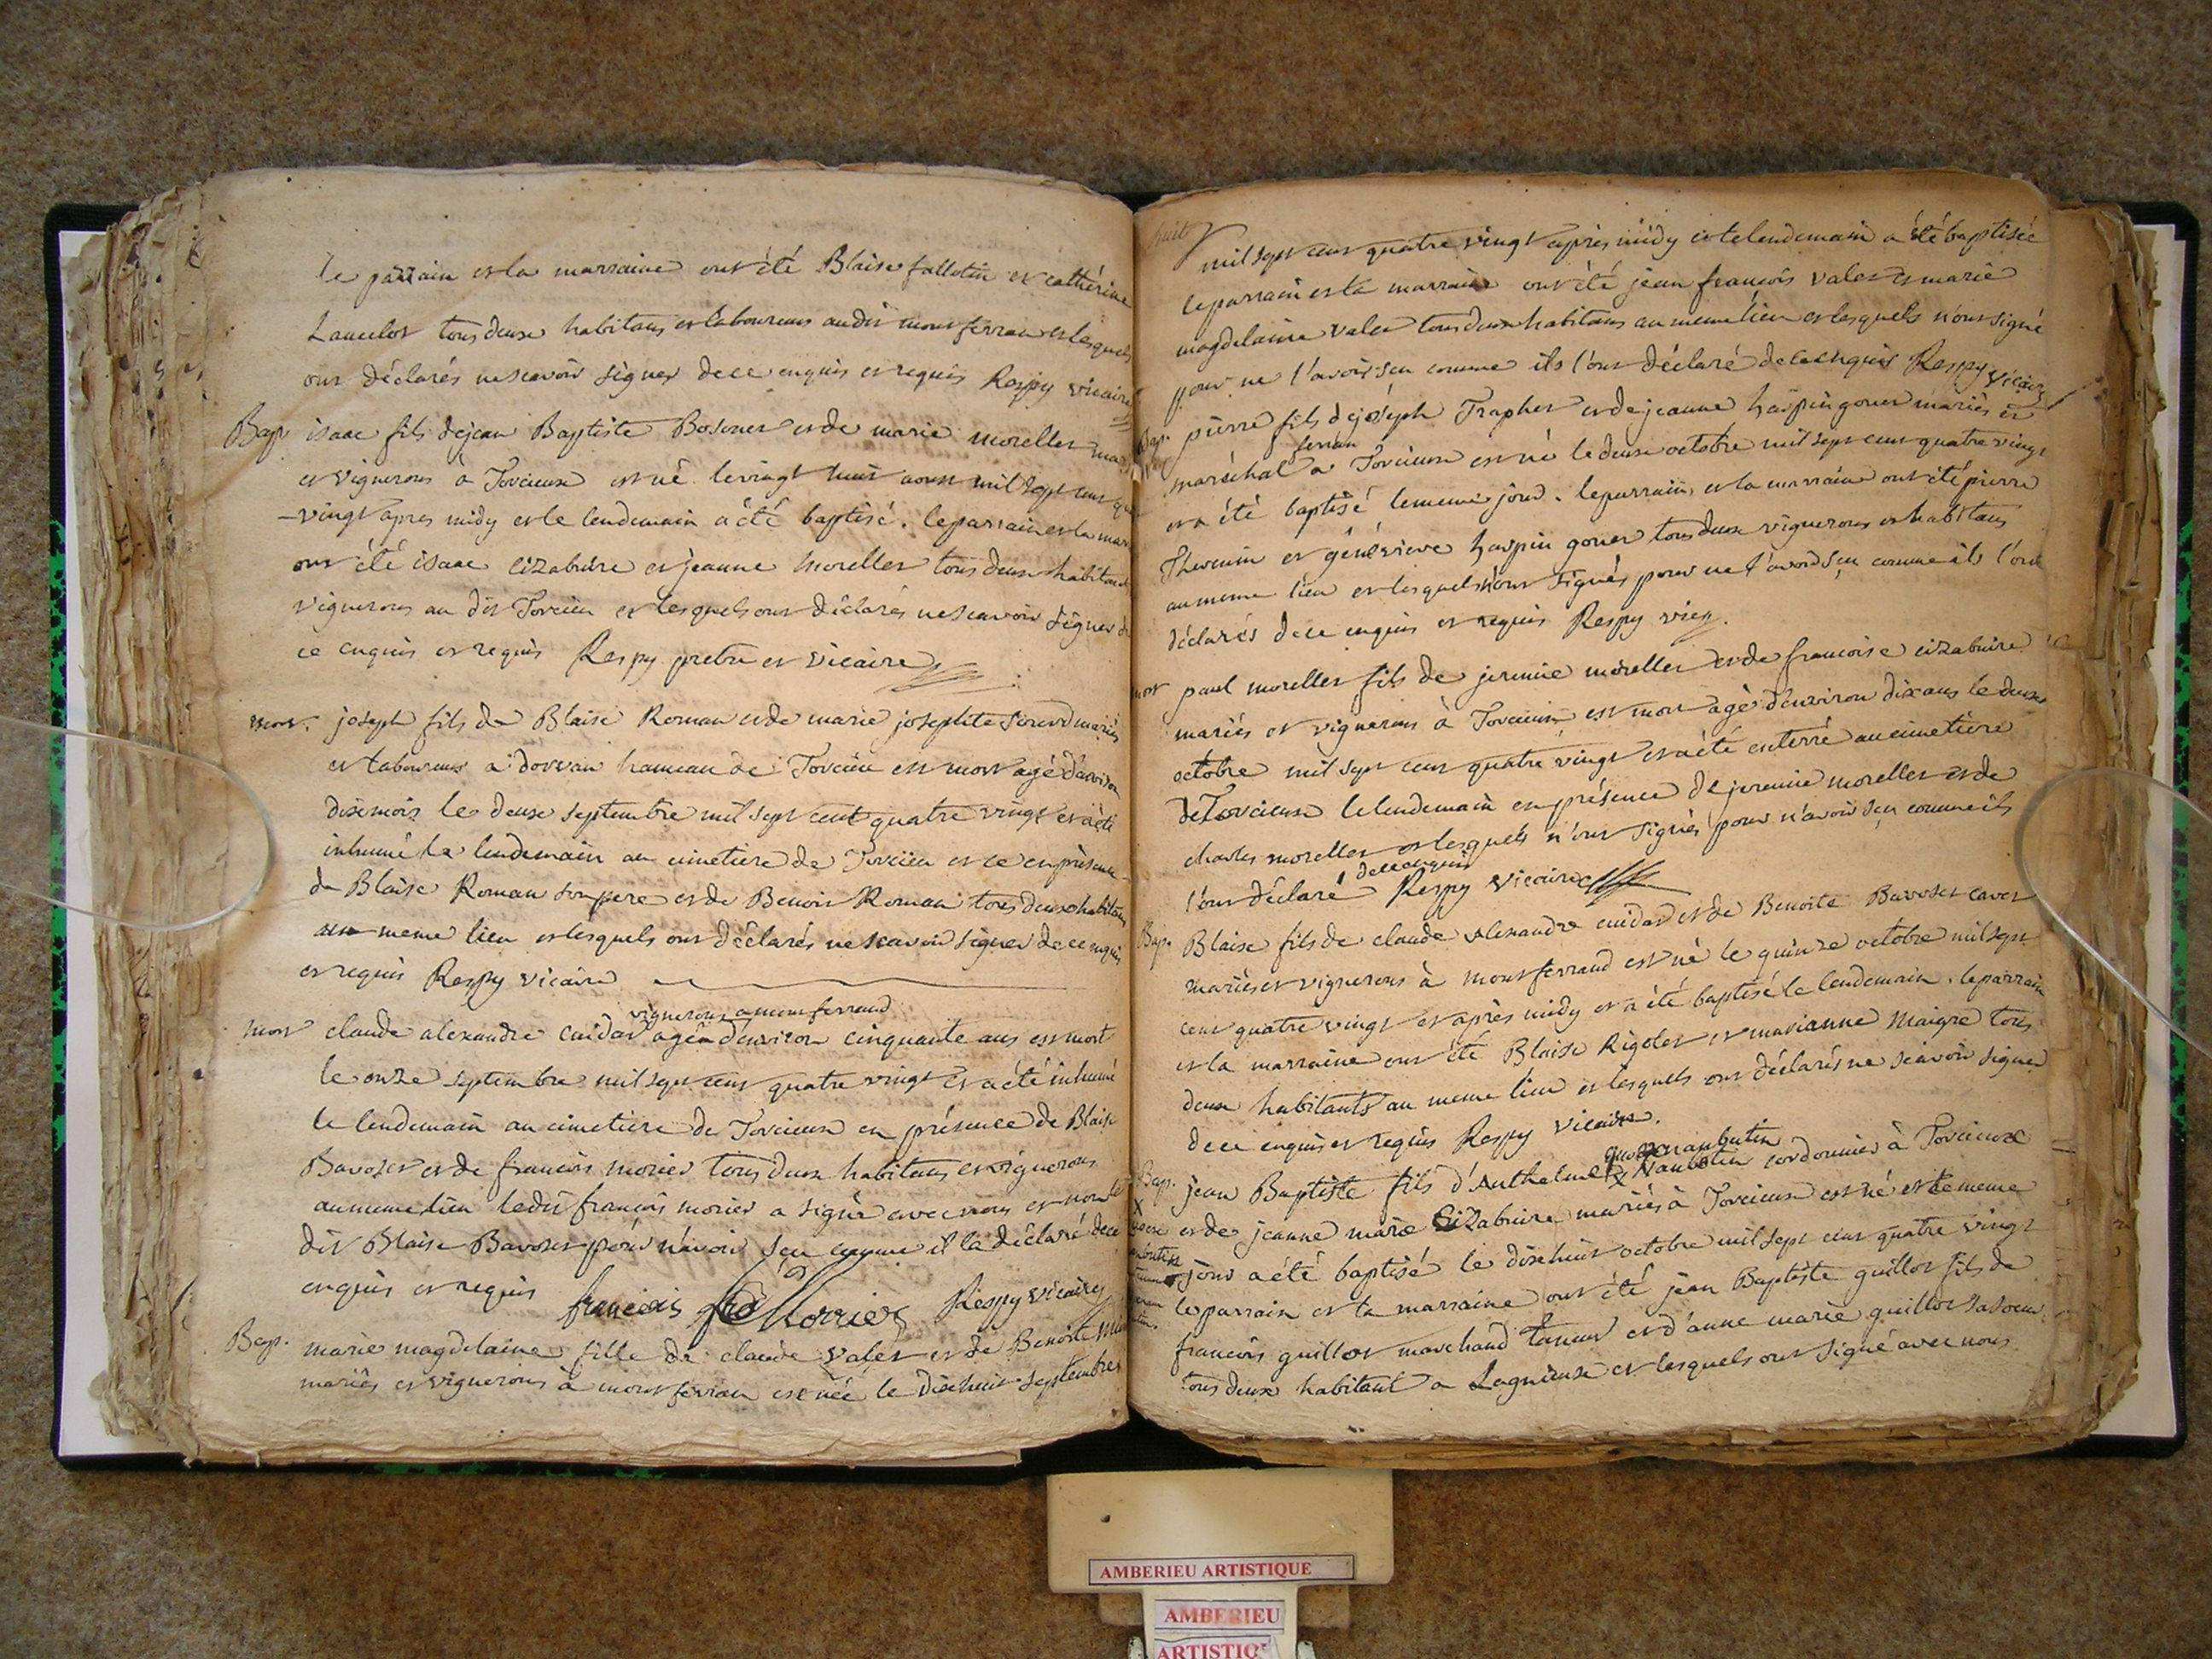 le parrain et la marraine ont été Blaise fallotin et cathérine
Lancelot tous deux habitans et laboureurs audit montferran et lesquels
ont déclarés ne scavoir signer de ce enquis et requis Respy vicaire
Bap. isaac fils de jean Baptiste Bosonet et de marie morellet
et vignerons à Torcieux est né le vingt huit aoust mil sept cent
-vingt apres midy et le lendemain a été baptisé. le parrain et la
ont été isaac eizabuire et jeanne Morellet tous deux habitans
vignerons au dit Torcieu et lesquels ont déclarés ne scavoir signer de
ce enquis et requis Respy pretre et vicaire
mort. joseph fils de Blaise Roman et de marie josephte mariés
et laboureurs a dorvan hameau de Torcieu est mort agé d'environ
dix mois le deux septembre mil sept cent quatre vingt et a été
inhumé le lendemain au cimetiere de Torcieu et ce en présence
de Blaise Roman son pere et de Benoit Roman tous deux habitans
au meme lieu et lesquels ont déclarés ne scavoir signer de ce enquis
et requis Respy vicaire
vignerons a montferrand
mort claude alexandre cuidat agé d'environ cinquante ans est mort
le onze septembre mil sept cent quatre vingt et a été inhumé
le lendemain au cimetiere de Torcieux en présence de Blaise
Bavoset et de francois morier tous deux habitans et vignerons
au meme lieu ledit françois morier a signé avec nous et non le
dit Blaise Bavoset pour n'avoir sçu comme il l'a déclaré de ce
enquis et requis francois Morrier Respy vicaire
Bap. marie magdelaine fille de claude valet et de Benoite
mariés et vignerons à montferran est née le dixhuit septembre
mil sept cent quatre vingt après midy et le lendemain a été baptisée
le parrain et la marraine ont été jean françois valet et marie
magdelaine valet tous deux habitans au meme lieu et lesquels n'ont signé
pour ne l'avoir sçu comme ils l'ont déclaré de ce enquis Respy vicaire
Bap. pierre fils de joséph Trapher et de jeanne harpin goner mariés et
ferran
maréchal a Torcieux est né le deux octobre mil sept cent quatre vingt
et a été baptisé le meme jour. le parrain et la marraine ont été pierre
Thevenin et géneviève harpin goner tous deux vignerons et habitans
au meme lieu et lesquels n'ont signés pour ne l'avoir sçu comme ils l'ont
déclarés de ce enquis et requis Respy vicr.
mort paul morellet fils de jeremie morellet et de francoise eizabuire
mariés et vignerons à Torcieux est mort agé d'environ dix ans le deux
octobre mil sept cent quatre vingt et a été enterré au cimetière
de Torcieux le lendemain en présence de jeremie morellet et de
charles morellet et lesquels n'ont signés pour n'avoir sçu comme ils
de ce enquis
l'ont déclaré Respy vicaire
Bap. Blaise fils de claude alexandre cuidat et de Benoite Bavoset
mariés et vignerons à montferrand est né le quinze octobre mil sept
cent quatre vingt et après midy et a été baptisé le lendemain. le parrain
et la marraine ont été Blaise Rigolet et marianne Maigre tous
deux habitants au meme lieu et lesquels ont déclarés ne sçavoir signer
de ce enquis et requis Respy vicaire.
Bap. jean Baptiste fils d'Anthelme cordonnier à Torcieux
et de jeanne marie Eizabuire mariés à Torcieux est né et le meme
jour a été baptisé le dixhuit octobre mil sept cent quatre vingt
le parrain et la marraine ont été jean Baptiste guillot fils de
francois guillot marchand taneur et d'anne marie guillot sa soeur
tous deux habitant a Lagnieux et lesquels ont signé avec nous
AMBERIEU ARTISTIQUE
AMBERIEU